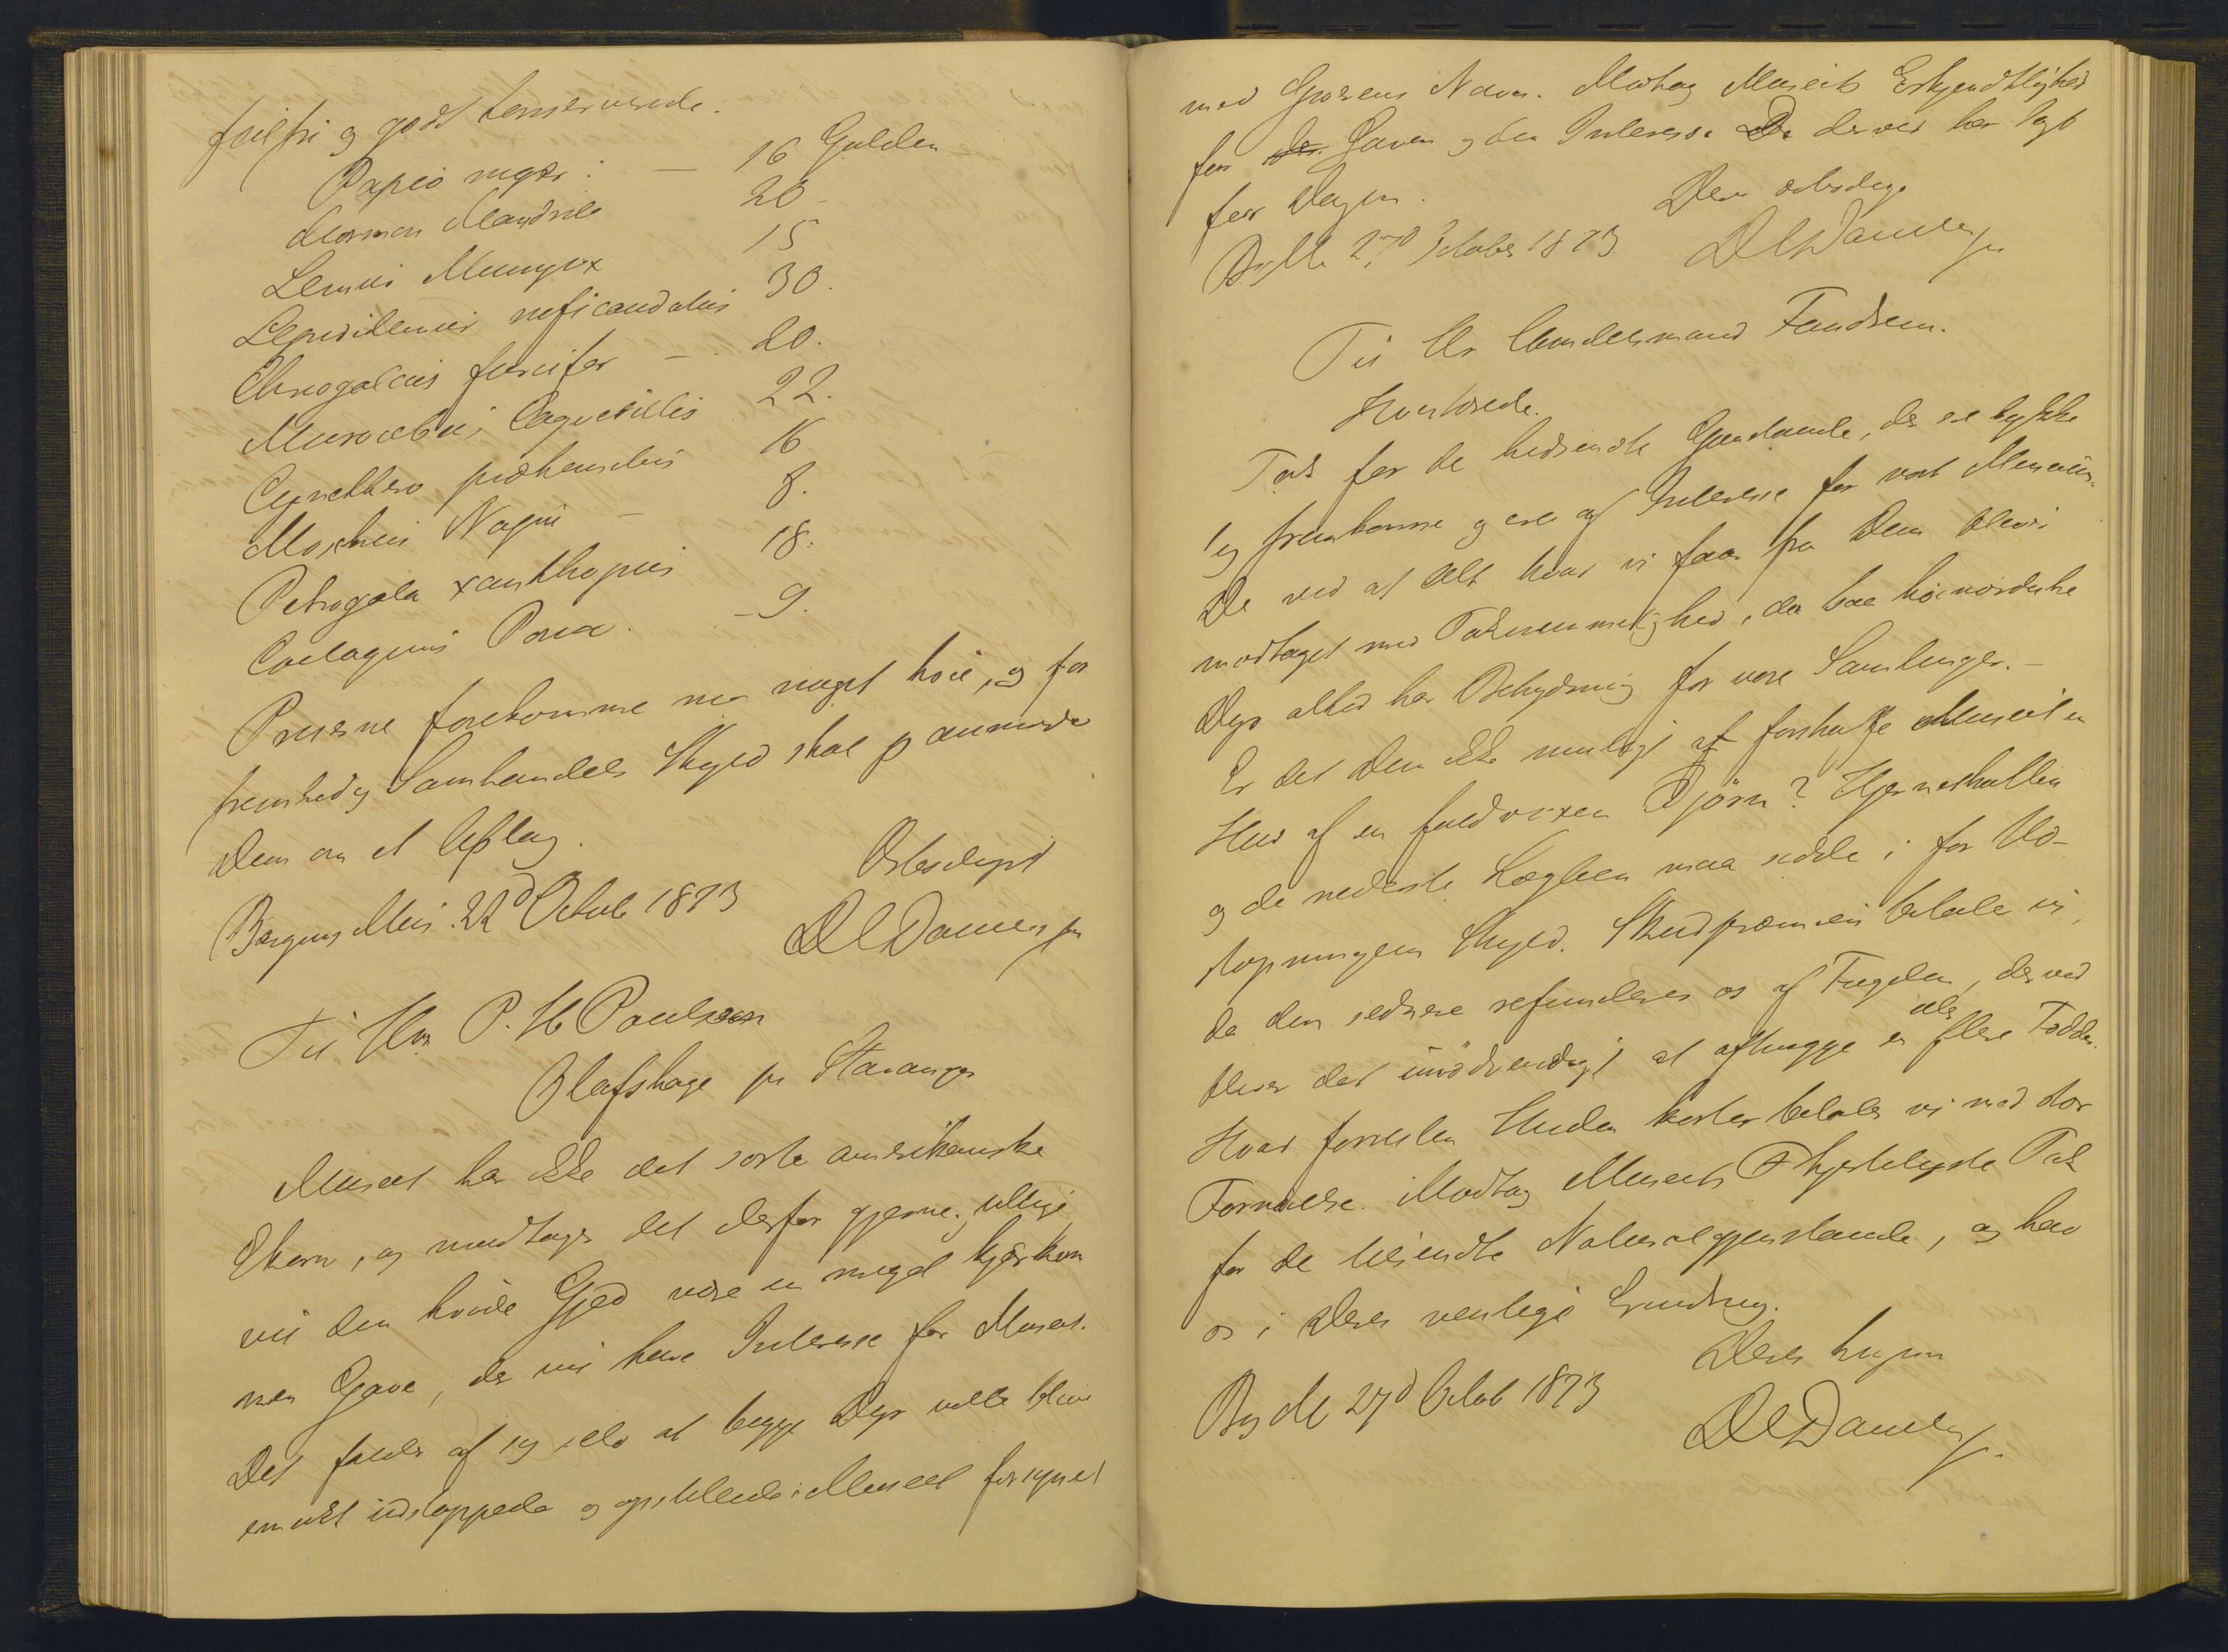 feilfri og godt conserverede.
Papio niger: — 16 Gulden
Mormon Mandrila 20 —
Lemur Mungoz 15
Lepidilemur ruficaudatus 30.
Chirogaleus furcifer — 20.
Microcebus Coquerillis 22.
Cyncthero prehensilis 16
Moschus Napu — 8.
Petrogala xanthopus 18.
Coelogenus Paca. — 9.
Priserne forekomme mig noget høie, og for
fremtidig Samhandels Skyld skal jeg anmode
Dem om et Afslag.
Bergens Mus. 22d Octob 1873
Ærbødigst
DCDanielssen
Til Hr. P. H Poulsson
Olafshage pr Stavanger
Museet har ikke det sorte amerikanske
Ekorn, og modtager det derfor gjerne, ellige
vil den hvide Gjed være en meget kjærkom
men Gave, der vil have Interesse for Museet.
Det falder af sig selv at begge Dyr ville blive
smukt udstoppede og opstillede i Museet forsynet
med Giverens Navn. Modtag Museets Erkjendtlighed
for Gaven og den Interesse De derved har lagt
for Dagen.
Den ærbødige
27d October 1873.
DCDanielssen
Til Hr Lensmand
Høistærede.
Tak for de hidsendte Gjenstande, der ere lykke
lig fremkomne og ere af Interesse for vort Museum.
De ved at Alt hvad vi faar fra Dem bliver
modtaget med Taknemmelighed, da saa høinordiske
Dyr altid har Betydning for vore Samlinger. —
Er det Dem ikke muligt at forskaffe Museet en
Hud af en fuldvoxen Bjørn? Hjerneskallen
og de nederste Lægben maa sidde i for Ud-
stopningens Skyld. Skudpræmien betale vi,
da den sednere refunderes os af Fogden, derved
bliver det unødvendigt at afhugge en eller flere Fødder.
Hvad forresten Huden koster betaler vi med stor
Fornøielse. Modtag Museets hjerteligste Tak
for de tilsendte Naturalgjenstande, og hav
os i Deres venlige Erindring.
Deres
27d Octob 1873
DCDanielssen